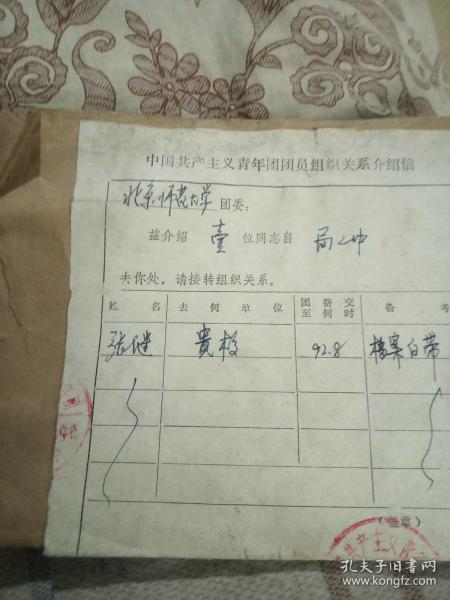 中国共产主义青年团团员组织关系介绍信
北京师范大学 团委：
兹介绍 壹 位同志自 局二中
去你处，请接转组织关系。
姓名 去何单位 团费交至何时 备考
张继 贵校 92.8 档案自带
（盖章）
共产主义青
孔夫子旧书网
www.kongfz.com